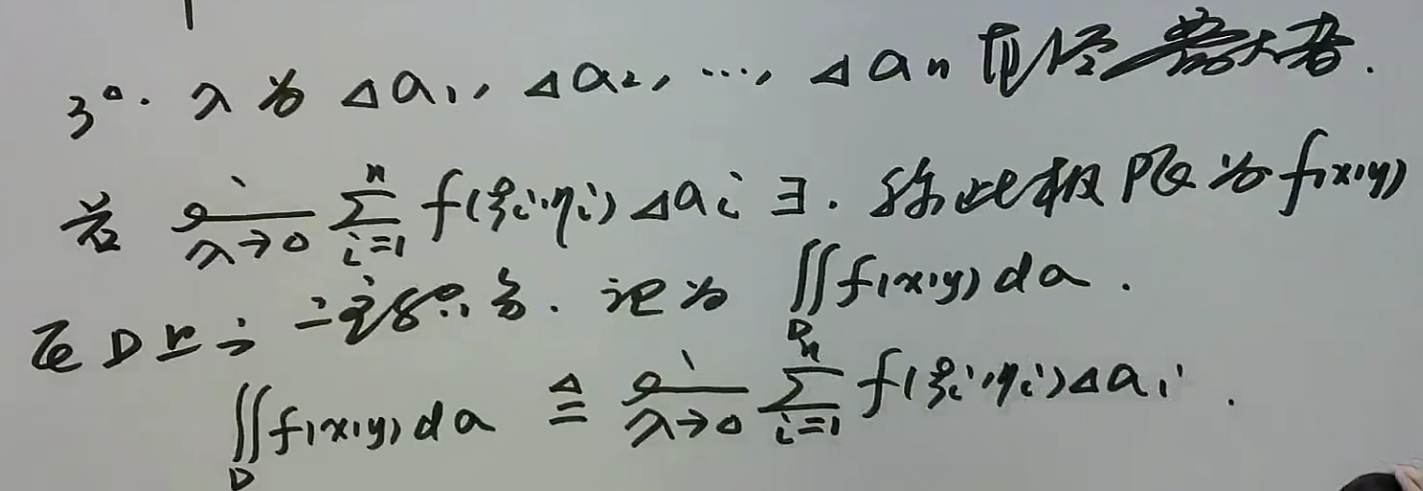 3°. λ为Δa₁, Δa₂, …, Δaₙ直径最大者.
若 lim_{λ→0} ∑_{i=1}^{n} f(ξᵢ,ηᵢ)Δaᵢ ∃. 称此极限为f(x,y)
在D上的二重积分. 记为 ∬_D f(x,y)da.
∬_D f(x,y)da ≜ lim_{λ→0} ∑_{i=1}^{n} f(ξᵢ,ηᵢ)Δaᵢ.